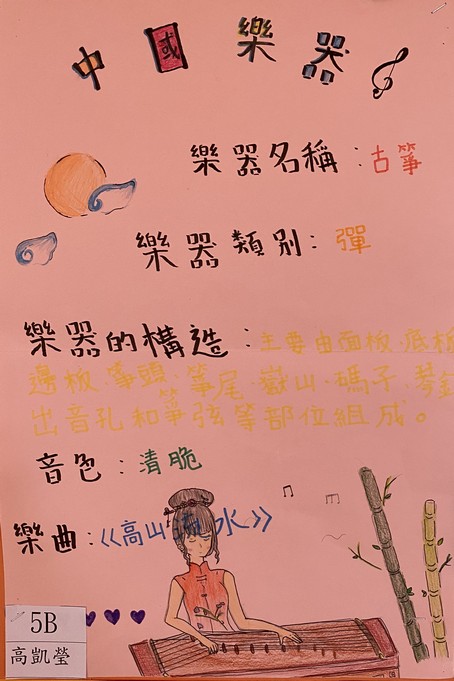 中國樂器
樂器名稱：古箏
樂器類別：彈
樂器的構造：主要由面板、底板
邊板、箏頭、箏尾、嶽山、碼子、琴釘
出音孔和箏弦等部位組成。
音色：清脆
樂曲：《高山流水》
5B
高凱瑩